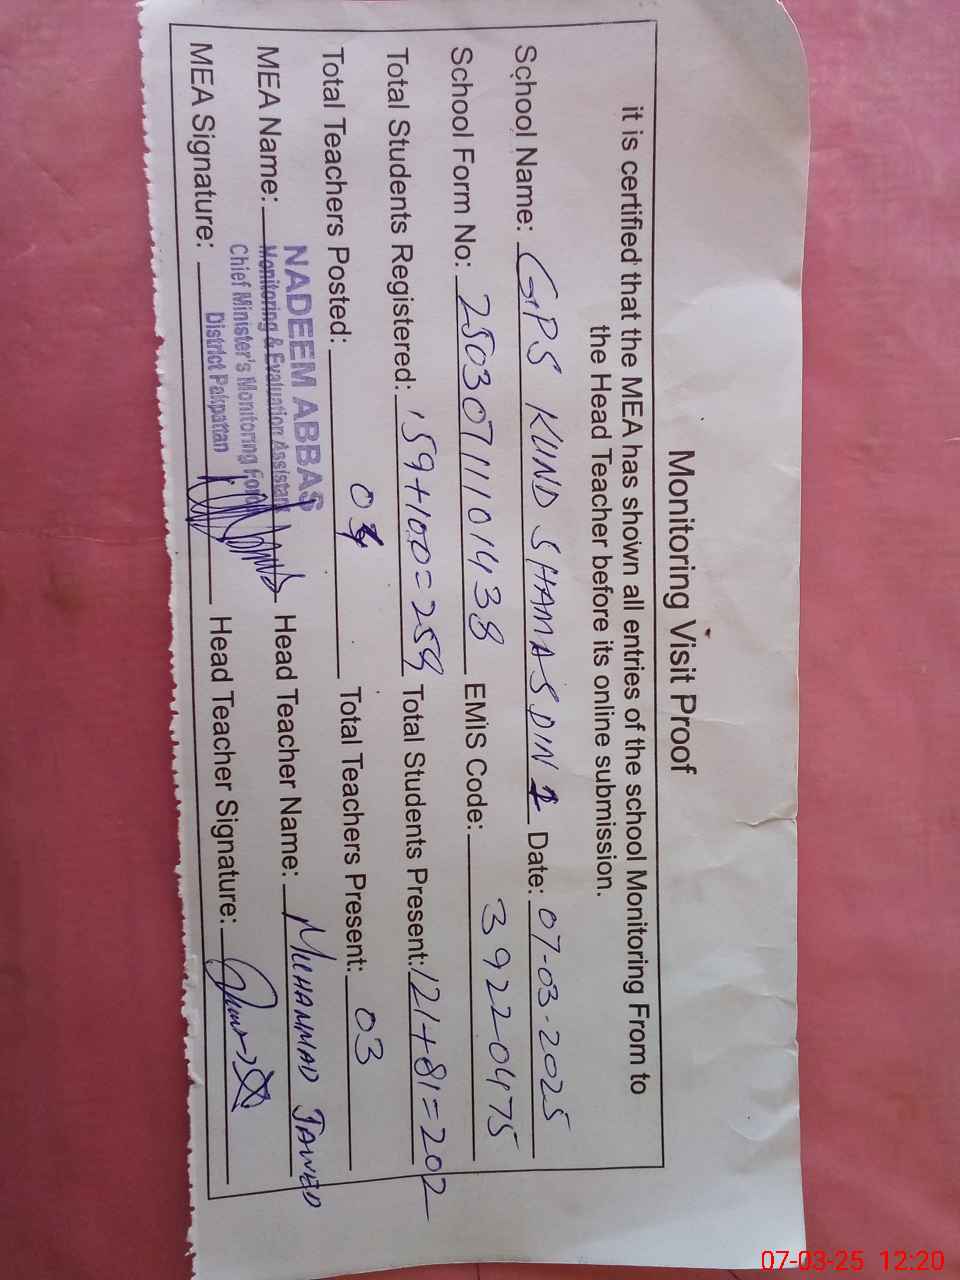 Monitoring Visit Proof
it is certified that the MEA has shown all entries of the school Monitoring From to
the Head Teacher before its online submission.
School Name: GPS KUND SHAMAS DIN 1 Date: 07-03-2025
School Form No: 25030711101438 EMiS Code: 39220475
Total Students Registered: 159+100=259 Total Students Present: 121+81=202
Total Teachers Posted: 04 Total Teachers Present: 03
MEA Name: NADEEM ABBAS Head Teacher Name: MUHAMMAD JAWED
Monitoring & Evaluation Assistant
Chief Minister's Monitoring Force
District Pakpattan
MEA Signature: Head Teacher Signature:
07-03-25 12:20